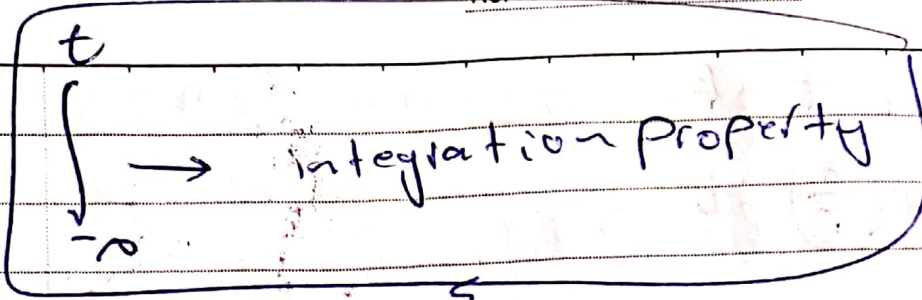 t
∫ → integration property
-∞